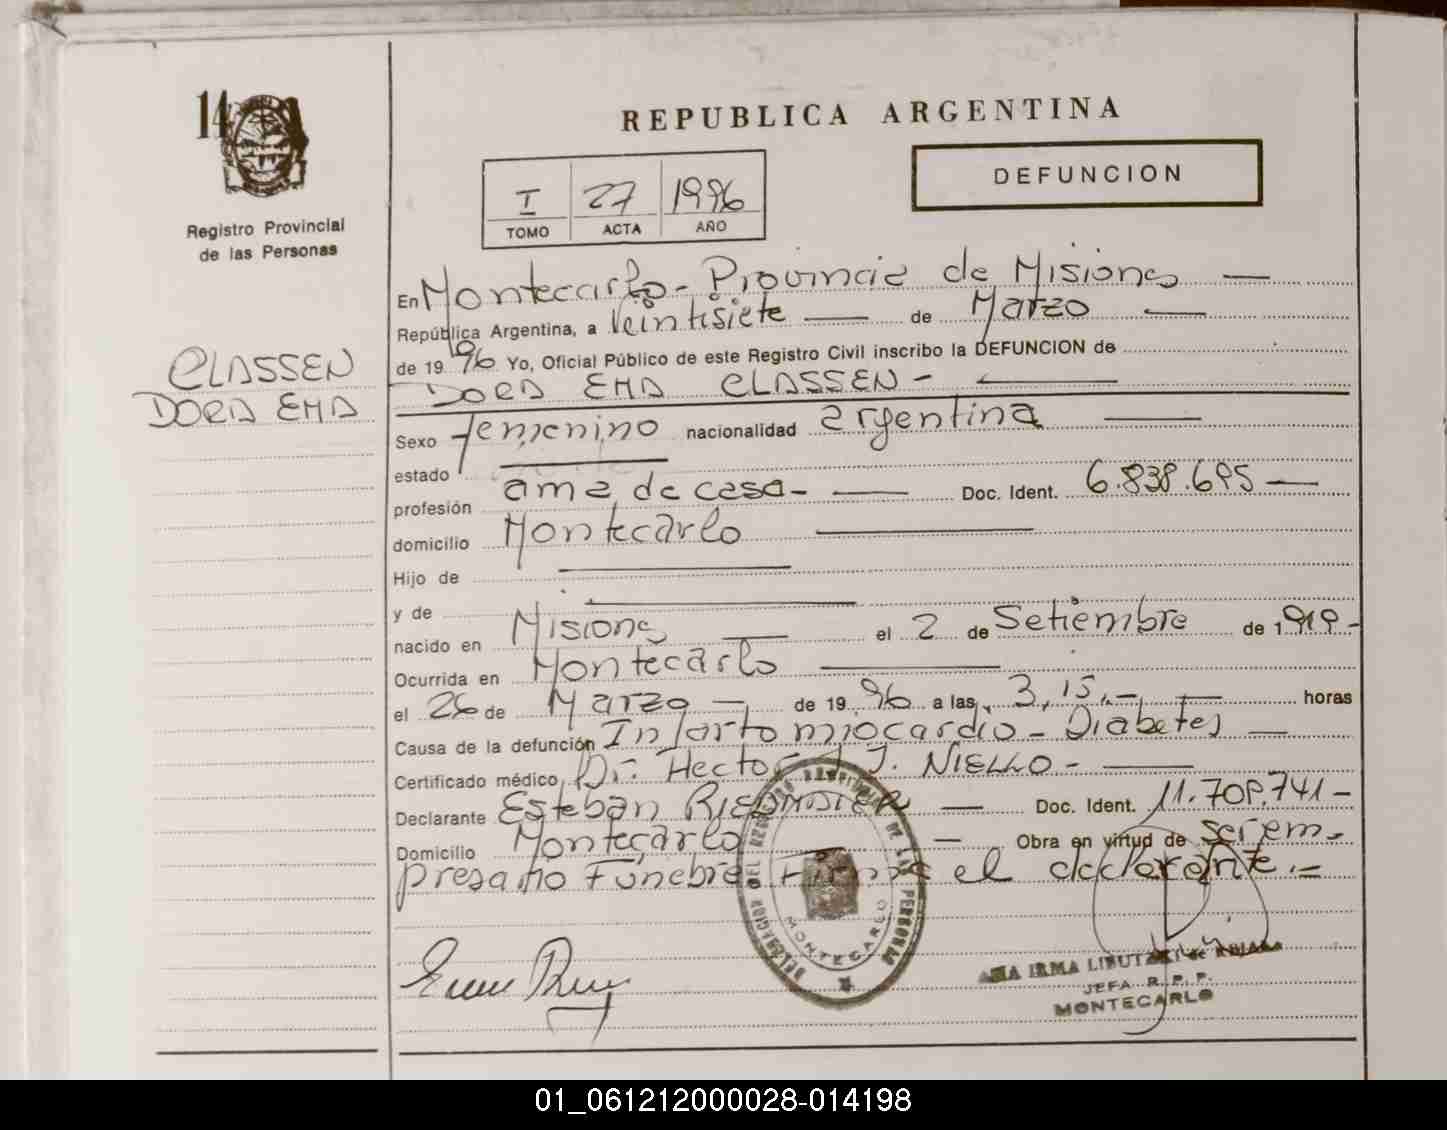 14
Registro Provincial
de las Personas
CLASSEN
DORA EMA
REPUBLICA ARGENTINA
DEFUNCION
I 27 1996
TOMO ACTA AÑO
En Montecarlo - Provincia de Misiones
República Argentina, a Veintisiete de Marzo
de 1996 Yo, Oficial Público de este Registro Civil inscribo la DEFUNCION de
DORA EMA CLASSEN -
Sexo femenino nacionalidad argentina
estado
profesión ama de casa - Doc. Ident. 6.838.695
domicilio Montecarlo
Hijo de
y de
nacido en Misiones el 2 de Setiembre de 1919-
Ocurrida en Montecarlo
el 26 de Marzo de 1996 a las 3,15.- horas
Causa de la defunción Infarto miocardio - Diabetes
Certificado médico Dr. Hector J. NIELLO -
Declarante Esteban Doc. Ident. 11.708.741-
Domicilio Montecarlo Obra en virtud de ser em-
presario Fúnebre. Firma el declarante.=
DELEGACION DEL REGISTRO PROVINCIAL DE LAS PERSONAS
MONTECARLO
ANA IRMA
JEFA R.P.P.
MONTECARLO
01_061212000028-014198